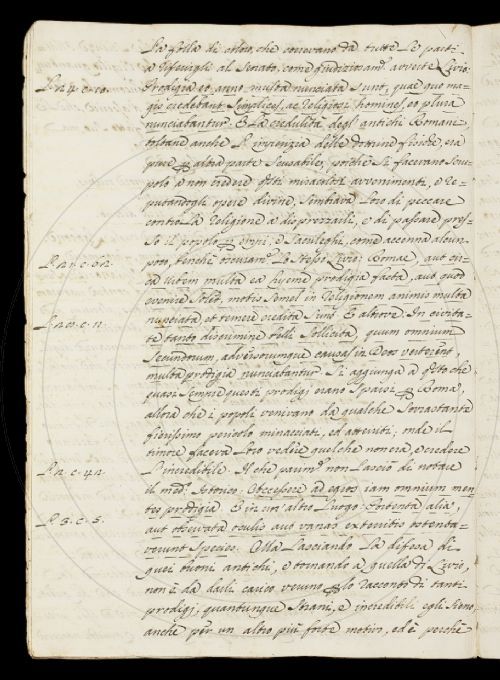 la folla di coloro, che correvano da tutte le parti
a riferirgli al Senato, come giudiziosam.e avverte Livio:
L. 24. c. 10. Prodigia eo anno multa nunciata sunt, quae quo ma-
gis credebant simplices, ac religiosi homines, eo plura
nunciabantur. E la credulità degl' antichi Romani,
tolvane anche l'influenza delle dottrine era
pure p altra parte scusabile, poichè si facevano scru-
polo a non credere q̃sti miracolosi avvenimenti, e re-
putandogli opere divine, sembrava loro di peccare
contro la religione a disprezzarli, e di passare pres-
so il popolo p empi, e sacrileghi, come accenna alcun-
L. 21. c. 62. poco, benchè oscuram.e lo stesso Livio: Romae, aut cir-
ca urbem multa ea hyeme prodigia facta, aut quod
evenire solet, motis semel in religionem animis multa
nunciata, et temere credita sunt. E altrove. In civita-
te tanto discrimine belli sollicita, quum omnium
secundorum, adversorumque causas in Deos verterent,
multa prodigia nunciabantur. Si aggiunga a q̃sto che
quasi sempre questi prodigj erano sparsi p Roma,
allora che i popoli venivano da qualche sovrastante
fierissimo pericolo minacciati, ed atterriti; onde il
timore faceva loro vedere quel che non era, e credere
L. 2. c. 42. l'incredibile. Il che parim.e non lasciò di notare
il med.o Istorico. Accessere ad egros iam omnium men-
tes prodigia. E in un' altro luogo. Portenta alia,
L. 3. c. 5. aut observata oculis aut vanas exterritis ostenta-
verunt species. Ma lasciando la difesa di
quei buoni antichi, e tornando a quella di Livio,
non è da darli carico veruno p lo racconto di tanti
prodigj, quantunque strani, e incredibili egli sieno,
anche per un altro più forte motivo, ed è perchè